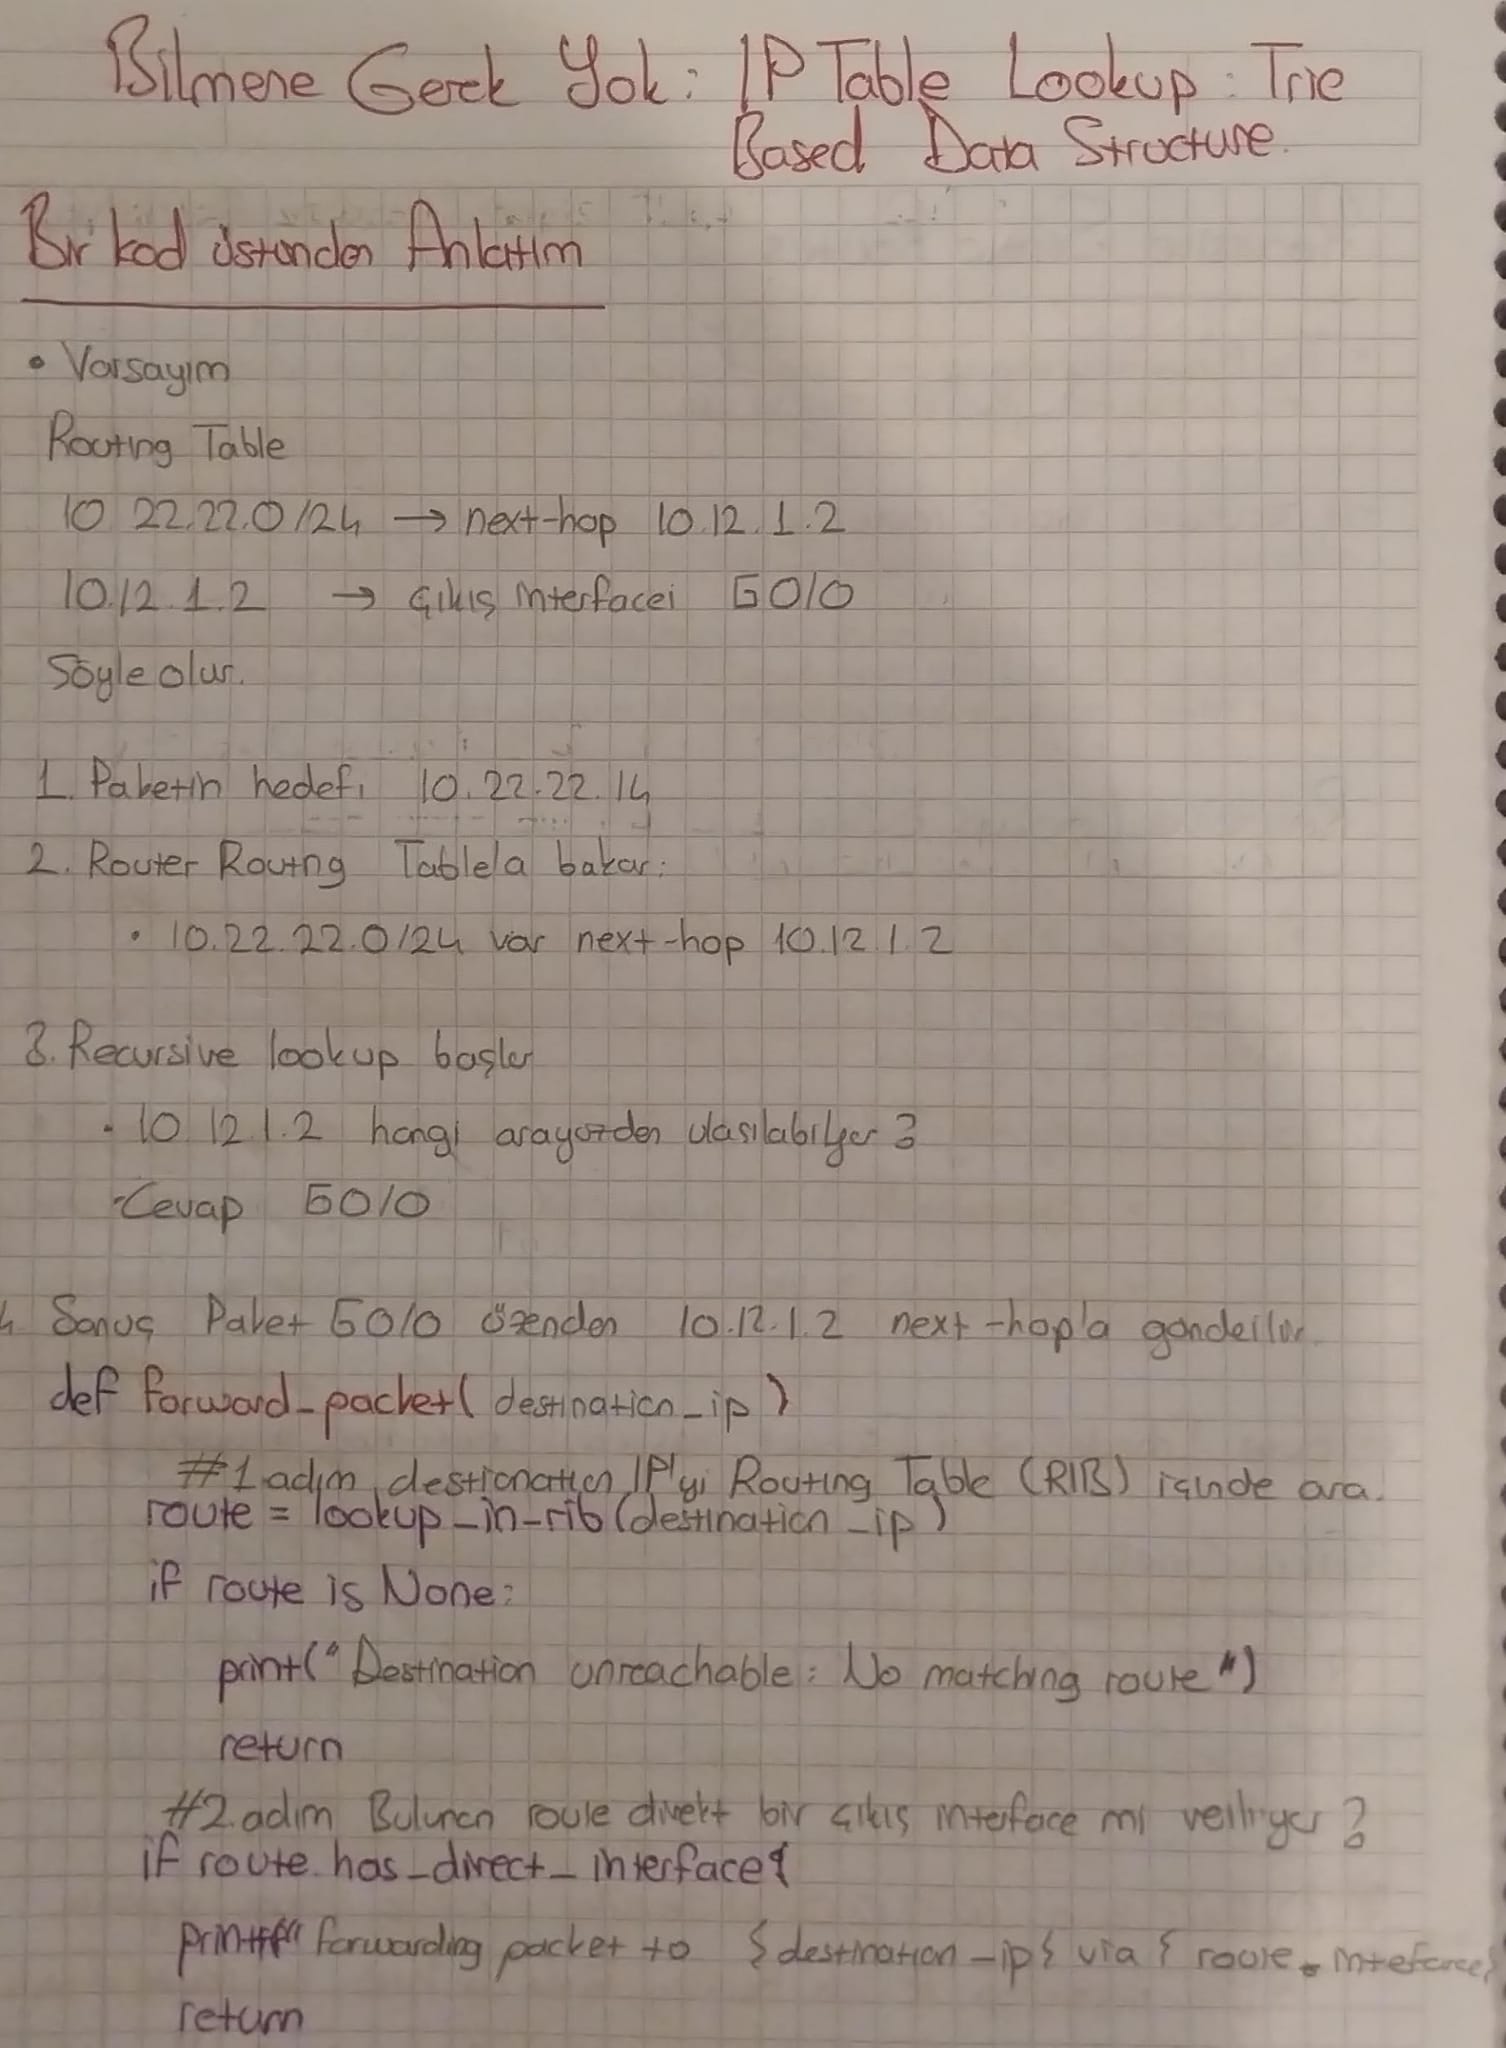 Bilmene Gerek Yok: IP Table Lookup: Trie
Based Data Structure.
Bir kod üstünden Anlatım
• Varsayım
Routing Table
10 22.22.0/24 → next-hop 10.12.1.2
10.12.1.2 → çıkış interfacei G0/0
Söyle olur.
1. Paketin hedefi 10.22.22.14
2. Router Routing Table'a bakar:
• 10.22.22.0/24 var next-hop 10.12.1.2
3. Recursive lookup başlar
• 10 12.1.2 hangi arayüzden ulaşılabiliyor?
-Cevap G0/0
4 Sonuç Paket G0/0 üzenden 10.12.1.2 next-hop'a gönderilir
def forward_packet(destination_ip)
#1.adım destionation IP'yi Routing Table (RIB) içinde ara.
route = lookup_in_rib(destination_ip)
if route is None:
print("Destination unreachable: No matching route")
return
#2.adım Bulunan route direkt bir çıkış interface mi veriliyor?
if route.has_direct_interface{
print(f" forwarding packet to {destination_ip} via {route.inteface}
return